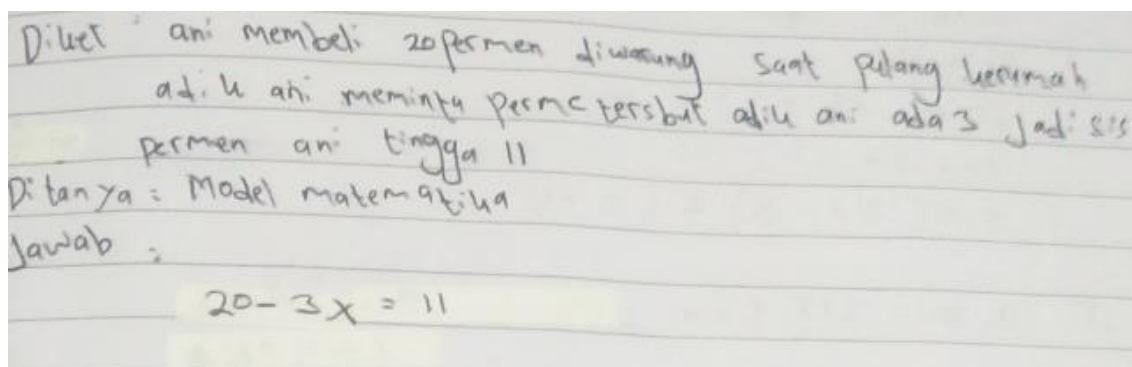 Diket ani membeli 20 permen diwarung saat pulang kerumah
adik ani meminta perme tersbut adik ani ada 3 jadi sis
permen ani tingga 11
Ditanya : Model matematika
Jawab :
20 - 3x = 11